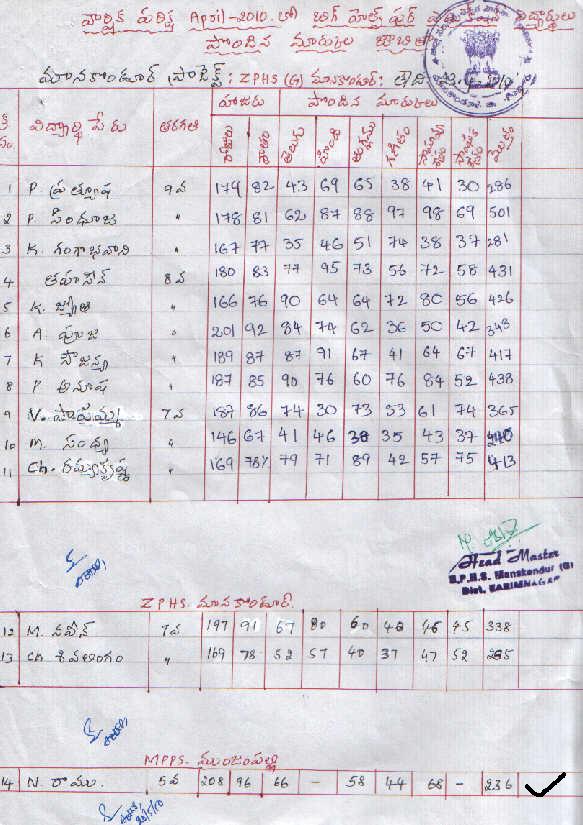 వార్షిక పరీక్ష April-2010. లో
పొందిన మార్కుల
ZPHS (G)
హాజరు పొందిన మార్కులు
విద్యార్థి పేరు తరగతి తెలుగు హిందీ గణితం
1 P. 9వ 174 82 43 69 65 38 41 30 286
2 P. సింధూజ " 178 81 62 87 88 97 98 69 501
3 K. గంగాభవాని " 167 77 35 46 51 74 38 37 281
4 8వ 180 83 77 95 73 56 72 58 431
5 K. జ్యోతి " 166 76 90 64 64 72 80 56 426
6 A. పూజ " 201 92 84 74 62 36 50 42
7 K సౌజన్య " 189 87 87 91 67 41 64 67 417
8 P అనూష " 187 85 90 76 60 76 84 52 438
9 N. 7వ 187 86 74 30 73 53 61 74 365
10 M. సంధ్య " 146 67 41 46 38 35 43 37 240
11 Ch. రమ్యకృష్ణ " 169 78% 79 71 89 42 57 75 413
Head Master
Z.P.H.S. Manakondur (G)
Dist. KARIMNAGAR
ZPHS. మానకొండూర్.
12 M. నవీన్ 7వ 197 91 67 80 60 46 45 338
13 Ch. శివలింగం " 169 78 52 57 40 37 47 52 285
MPPS. ముంజంపల్లి
14 N. రాము. 5వ 208 96 66 - 58 44 68 - 236